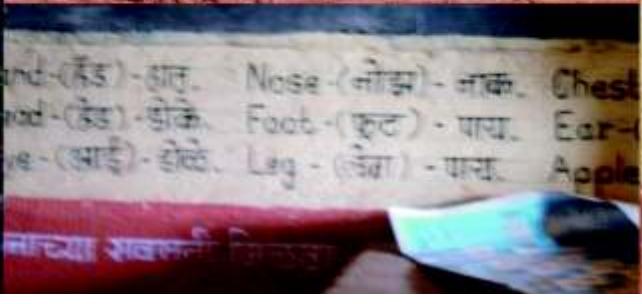 and-(हँड)-हात. Nose-(नोझ)-नाक. Chest
ead-(हेड)-डोके. Foot-(फूट)-पाय. Ear-
ye-(आई)-डोळे. Leg-(लेग)-पाय. Apple
नाच्या सवलती